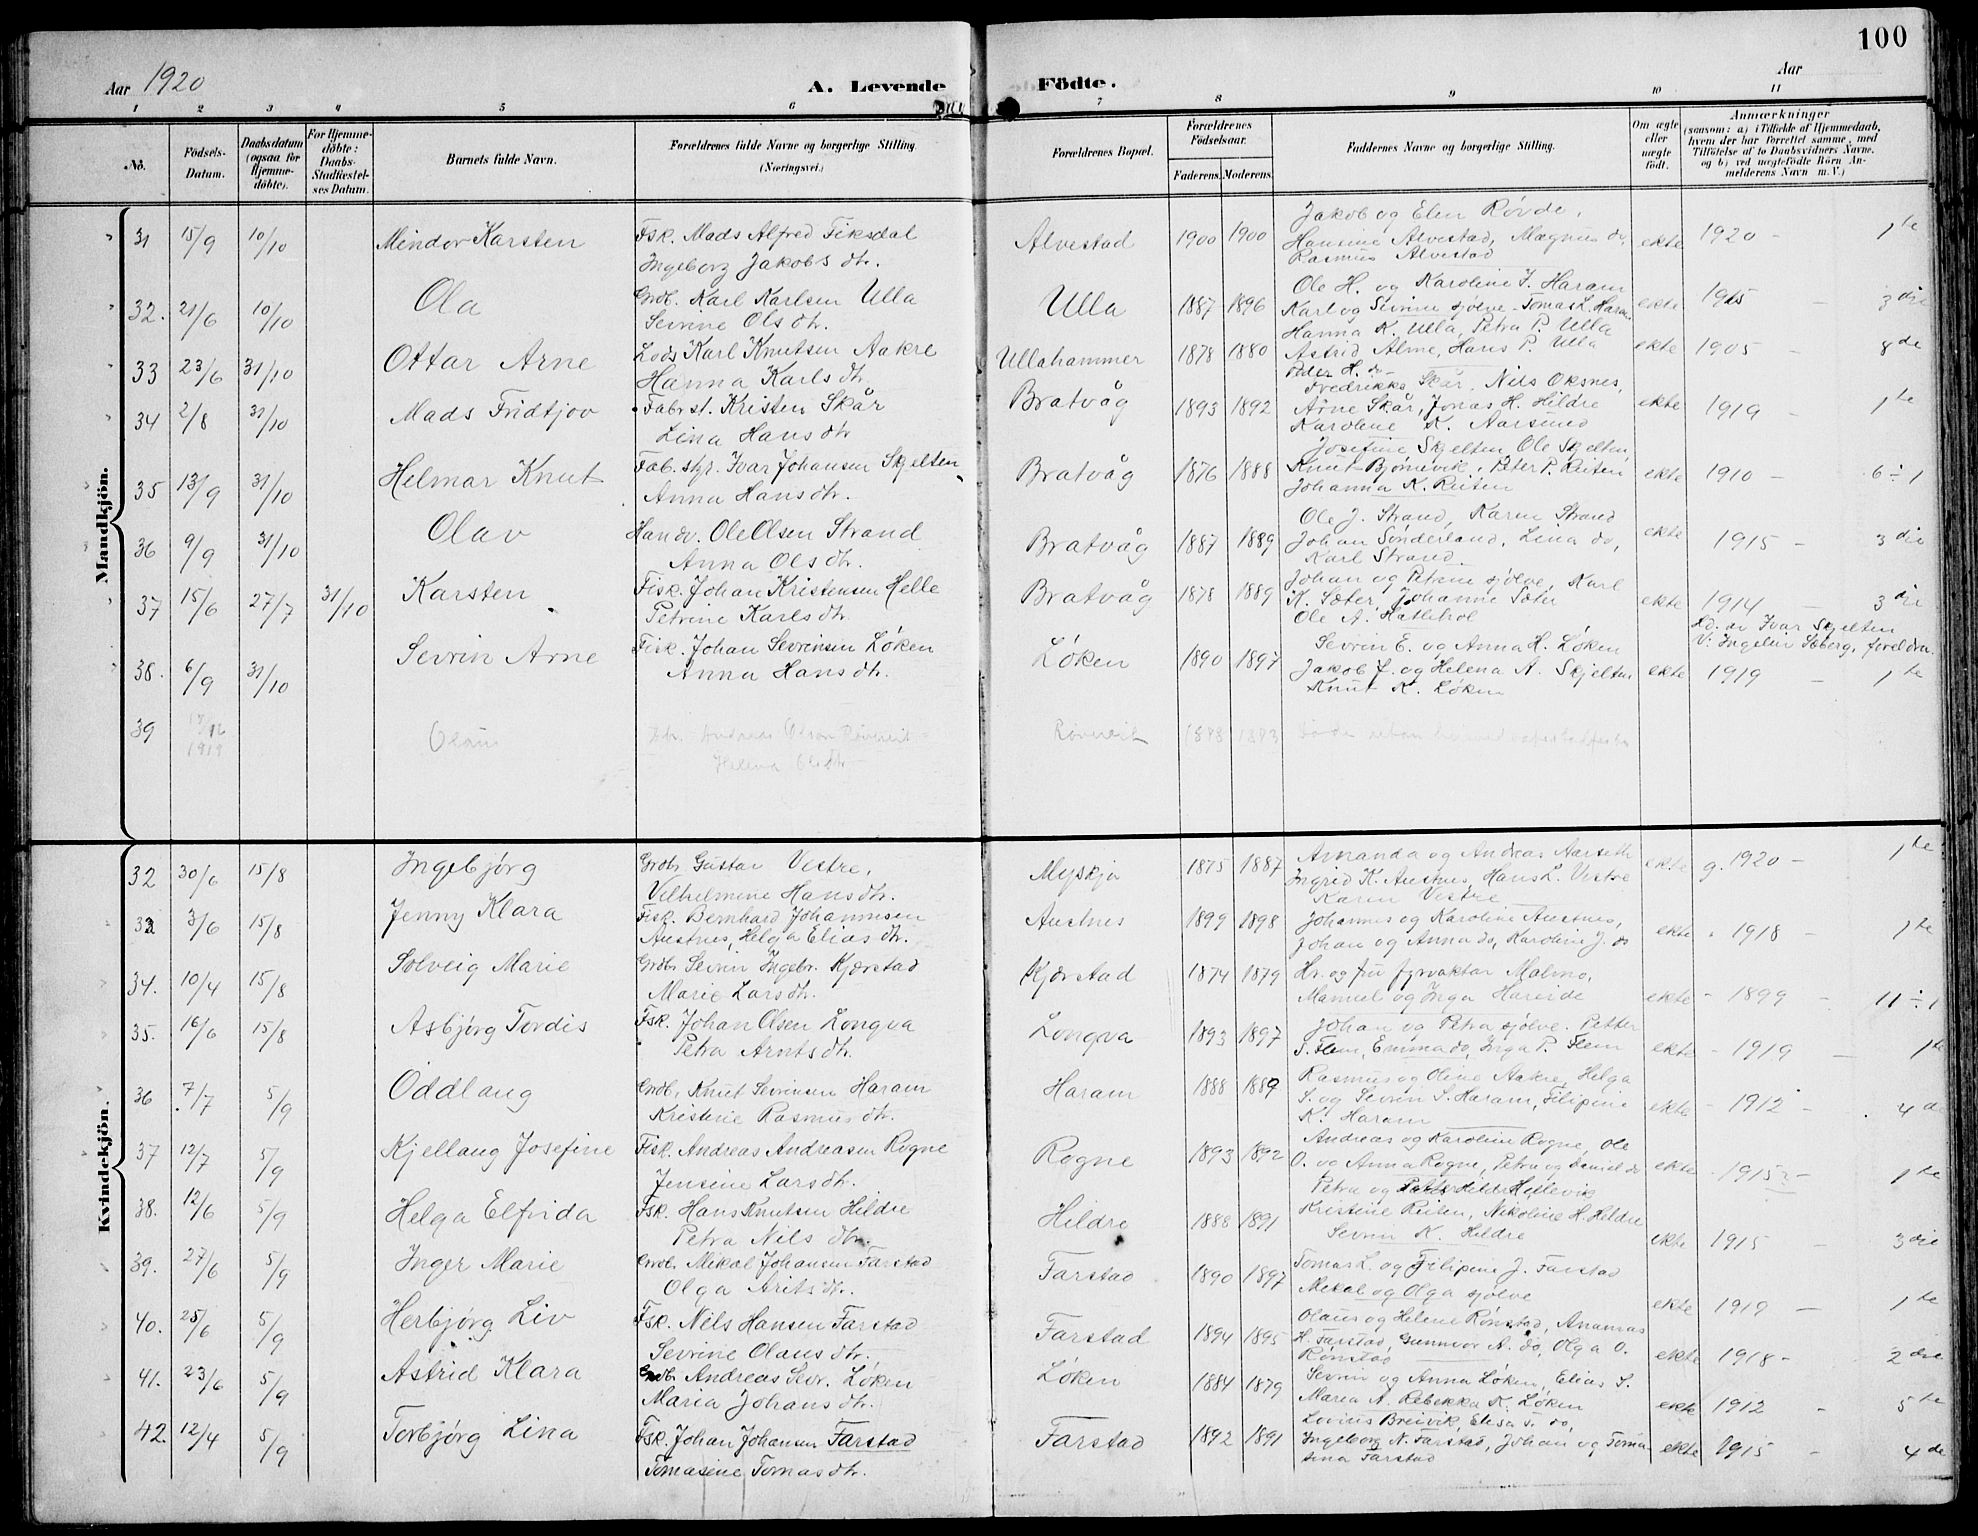 100
Aar 1920
A. Levende Födte.
Aar
1 2 3 4 5 6 7 8 9 10 11
No.
Födsels-Datum.
Daabsdatum (ogsaa for Hjemme-døbte).
For Hjemme-døbte: Daabs-Stadfæstel-ses Datum.
Barnets fulde Navn.
Forældrenes fulde Navne og borgerlige Stilling. (Næringsvei.)
Forældrenes Bopæl.
Forældrenes Födselsaar.
Faderens. Moderens.
Faddernes Navne og borgerlige Stilling.
Om ægte eller uægte födt.
Anmærkninger (saasom: a) i Tilfælde af Hjemmedaab, hvem der har forrettet samme, med Tilföielse af to Daabsvidners Navne, og b) ved uægtefödte Börn An-melderens Navn m. V.)
Mandkjön.
31 15/9 10/10 Mindor Karsten Fsk. Mads Alfred Fiksdal Alvestad 1900 1900 Jakob og Elen Røvde, ekte 1920 - 1te
Ingeborg Jakobs dtr. Hansine Alvestad, Magnus do,
Rasmus Alvestad
32. 21/6 10/10 Ola Grdb. Karl Karlsen Ulla Ulla 1887 1896 Ole H. og Karoline J. Haram ekte 1915 - 3die
Sevrine Ols dtr. Karl og Sevrine sjølve - Tomas L. Haram
Hanna K. Ulla, Petra P. Ulla
33 23/6 31/10 Ottar Arne Lods Karl Knutsen Aakre Ullahammer 1878 1880 Astrid Alme, Hans P. Ulla ekte 1905 - 8de
Hanna Karls dtr. Peter H. do -
34 2/8 31/10 Mads Fridtjov Fabrst. Kristen Skår Bratvåg 1893 1892 Fredrikke Skår, Nils Oksnes, ekte 1919 - 1te
Lina Hans dtr Arne Skår, Jonas H. Hildre
Karoline K. Aarsund
35 13/9 31/10 Helmar Knut Fab. styr. Ivar Johansen Skjelten Bratvåg 1876 1888 Josefine Skjelten, Ole Skjelten, ekte 1910 - 6 ÷ 1
Anna Hans dtr. Knut Bjørnevik, Peter P. Reiten
Johanna K. Reiten
36 9/9 31/10 Olav Handv. Ole Olsen Strand Bratvåg 1887 1889 Ole J. Strand, Karen Strand ekte 1915 - 3die
Anna Ols dtr. Johan Sønderland, Lina do,
Karl Strand.
37 15/6 27/7 31/10 Karsten Fisk. Johan Kristensen Helle Bratvåg 1878 1889 Johan og Petrine sjølve, Karl ekte 1914 - 3die
Petrine Karls dtr. K. Sæter, Johanne Sæter
Ole A. Hatlehol Hd. av Ivar Skjelten
V. Ingelin Søberg, foreldra.
38. 6/9 31/10 Sevrin Arne Fisk. Johan Sevrinsen Løken Løken 1890 1897 Sevrin E. og Anna H. Løken ekte 1919 - 1te
Anna Hans dtr. Jakob J. og Helena A. Skjelten
Knut K. Løken
39 1919 Olaus Andreas Olsen Røvreit 1883
Kvindekjön.
32 30/6 15/8 Ingebjørg Grdbr Gustav Vestre, Myskja 1875 1887 Amanda og Andreas Aarseth ekte g. 1920 - 1te
Vilhelmine Hans dtr. Ingrid K. Austnes, Hans L. Vestre
Karen Vestre
33 3/6 15/8 Jenny Klara Fisk. Bernhard Johannesen Austnes 1899 1898 Johannes og Karoline Austnes, ekte 1918 - 1te
Austnes, Helga Elias dtr. Johan og Anna do, Karoline J. do
34. 10/4 15/8 Solveig Marie Grdbr Sevrin Ingebr. Kjerstad Kjerstad 1874 1879 Hr. og fru fyrvaktar Malmo, ekte - 1899 - 11 ÷ 1
Marie Lars dtr. Manuel og Inga Hareide
35. 16/6 15/8 Asbjørg Tordis Fsk. Johan Olsen Longva Longva 1893 1897 Johan og Petra sjølve. Petter ekte - 1919 - 1te
Petra Arnts dtr. S. Flem, Emma do, Inga P. Flem
36 7/7 5/9 Oddlaug Grdb. Knut Sevrinsen Haram Haram 1888 1889 Rasmus og Oline Aakre, Helga ekte - 1912 - 4de
Kristine Rasmus dtr. S. og Sevrin S. Haram, Filipine
K. Haram
37 12/7 5/9 Kjellaug Josefine Fisk. Andreas Andreasen Rogne Rogne 1893 1892 Andreas og Karoline Rogne, Ole ekte 1915? - 1te
Jensine Lars dtr. O. og Anna Rogne, Petra og Daniel do
Petra og Hellevig
38. 12/6 5/9 Helga Elfrida Fsk. Hans Knutsen Hildre Hildre 1888 1891 Kristine Reiten, Nikoline H. Hildre ekte 1915 - 3die
Petra Nils dtr. Sevrin K. Hildre
39. 27/6 5/9 Inger Marie Grdb. Mikal Johansen Farstad Farstad 1890 1897 Tomas L. og Filipine J. Farstad ekte 1919 - 1te
Olga Arits dtr. Mikal og Olga sjølve
40. 25/6 5/9 Herbjørg Liv Fsk. Nils Hansen Farstad Farstad 1894 1895 Olaus og Helene Rønstad, Ananias ekte 1918 - 2dre
Sevrine Olaus dtr. H. Farstad, Gunnvor A. do, Olga O.
Rønstad
41. 23/6 5/9 Astrid Klara Grdb. Andreas Sevr. Løken Løken 1884 1879 Sevrin og Anna Løken, Elias S. ekte 1912 - 5te
Maria Johans dtr. Marea A. Rebekka K. Løken
42. 12/4 5/9 Torbjørg Lina Fsk. Johan Johansen Farstad Farstad 1892 1891 Lovius Breivik, Elisa T. do, ekte 1915 - 4de
Tomasine Tomas dtr. Ingeborg N. Farstad, Johan og Toma-
sina Farstad